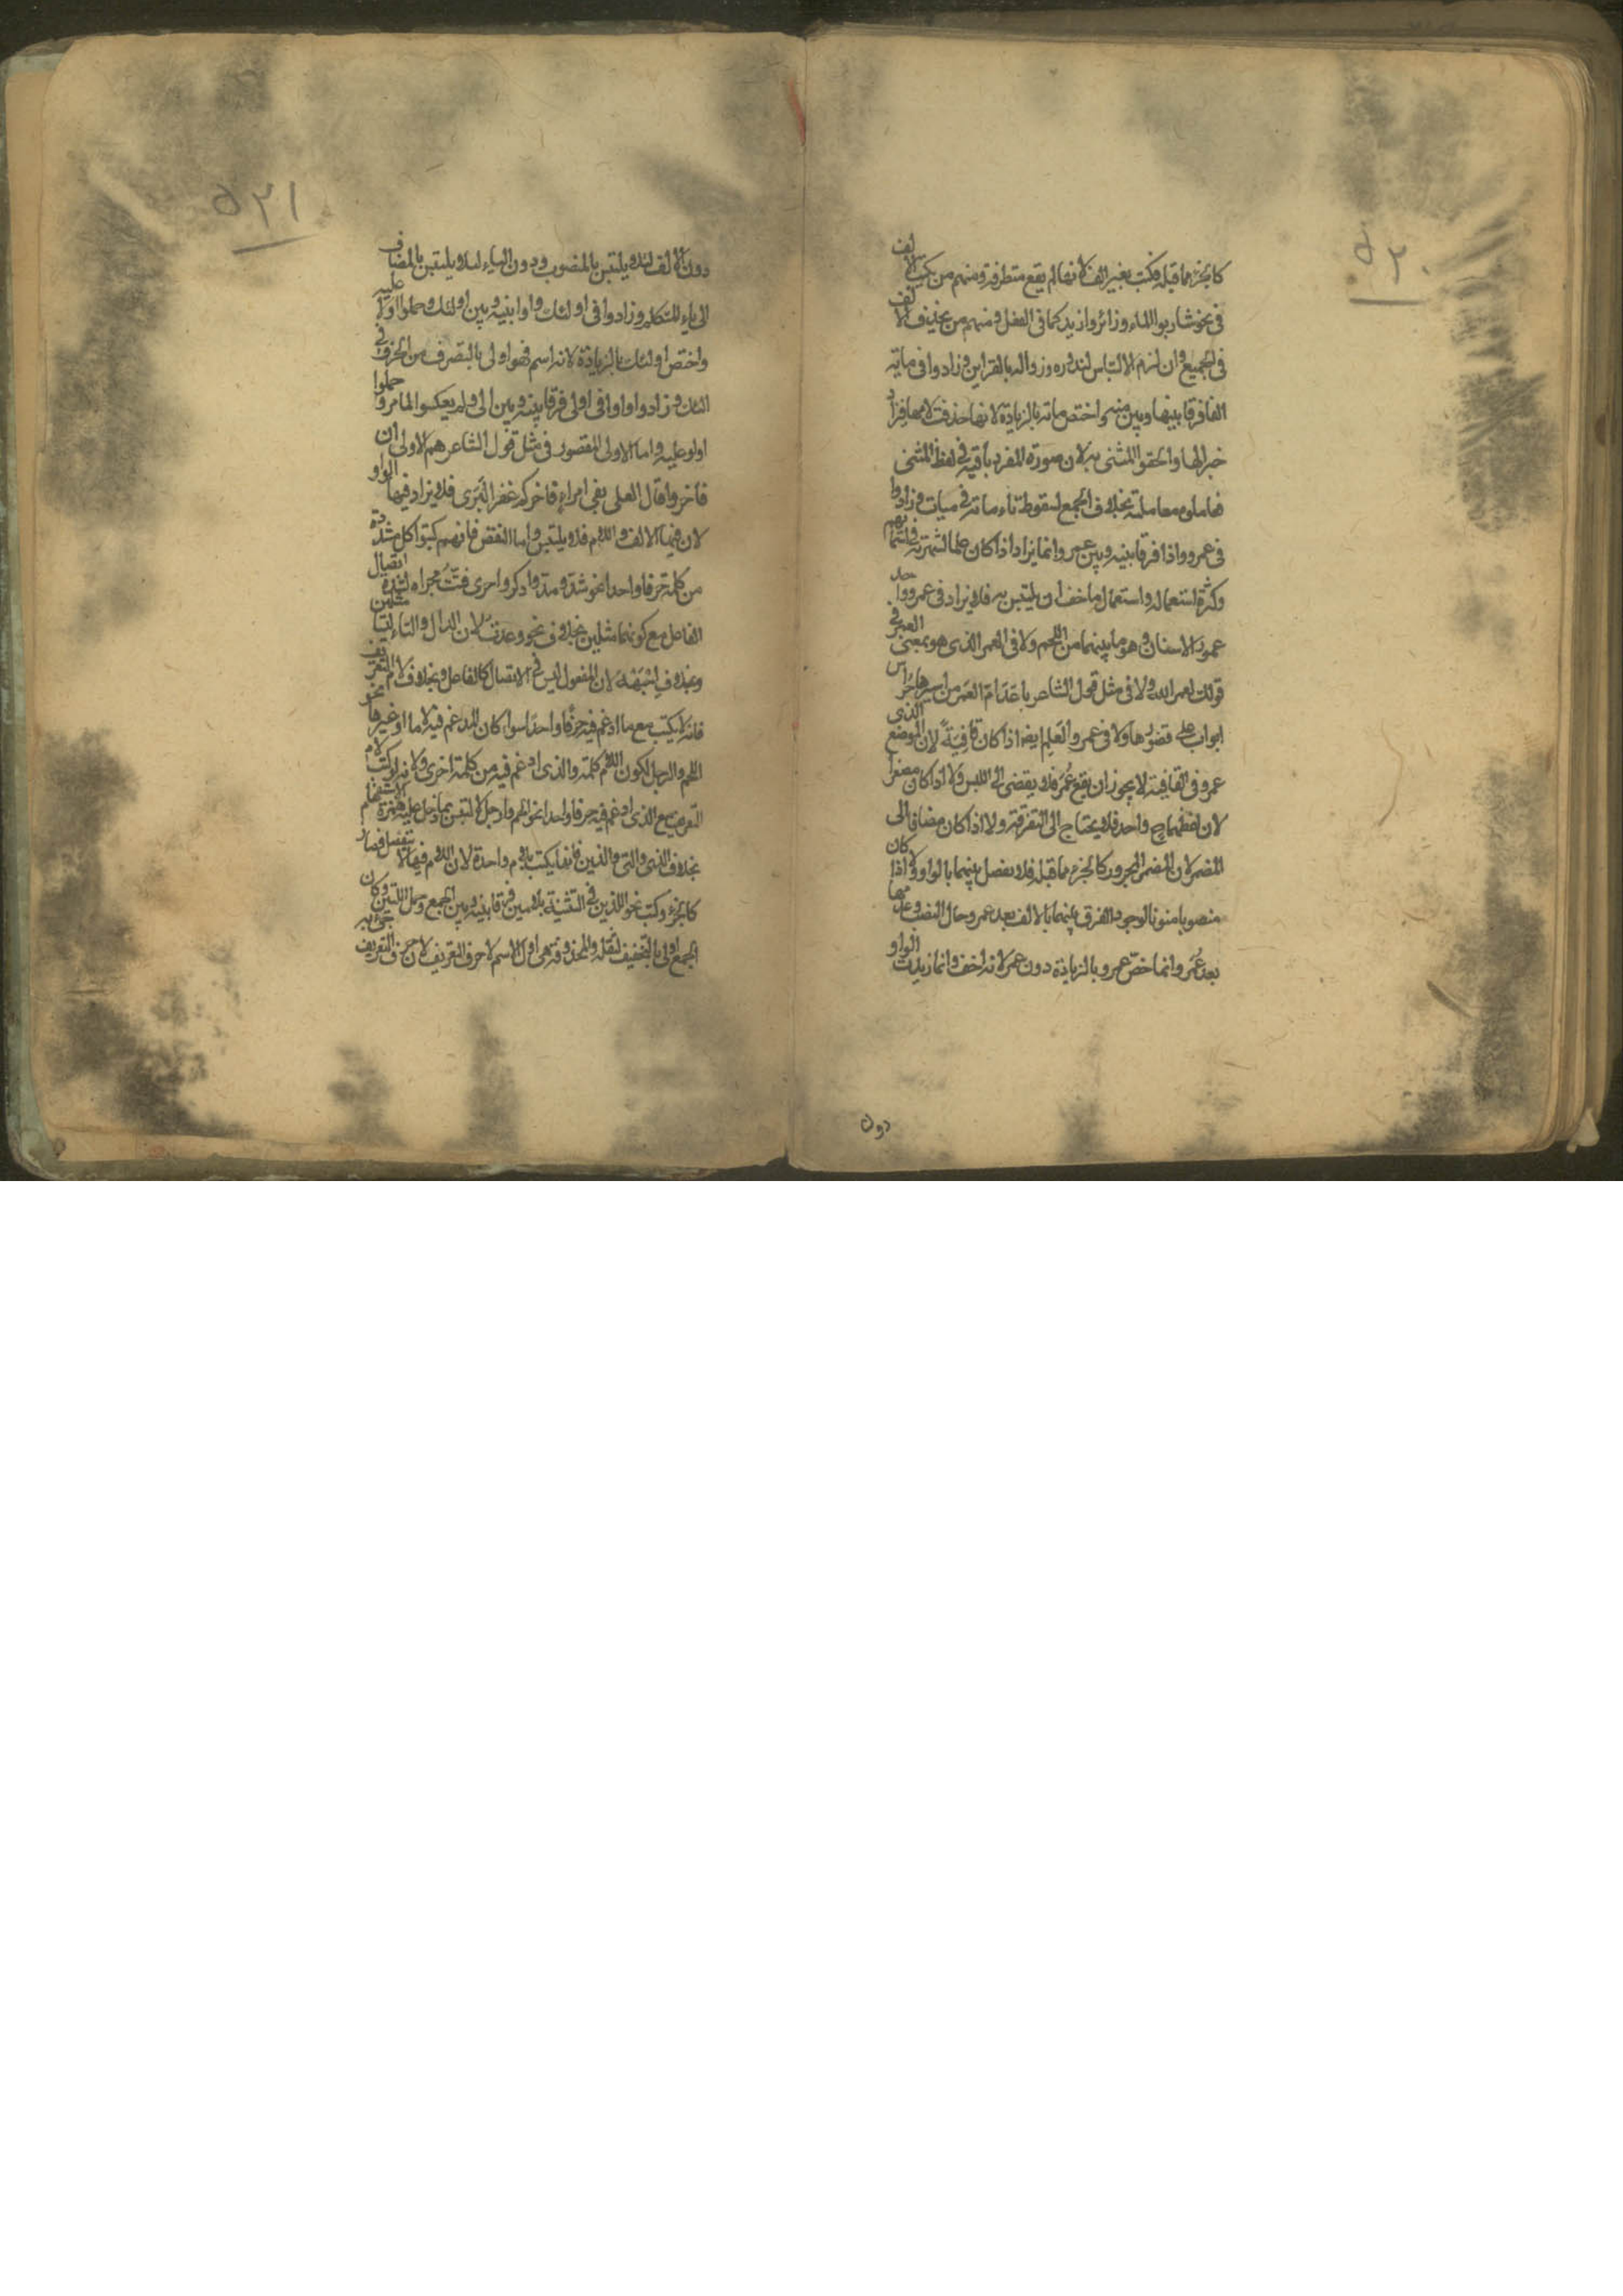 ٥٢٠
كالجزء مما قبله فكتب بغير الف لانها لم يقع متطرفة ومنهم من يكتب الالف
في نحو شاربوا الماء وزائروا زيد كما في الفعل ومنهم من يحذف الالف
في الجميع وان لزم الالتباس لندوره وزواله بالقراين وزادوا في مائة
الفا فرقا بينها وبين منه واختص مائة بالزيادة لانها حذفت لامها فزاد
جبرا لها والحقوا المثنى به لان صورة المفرد باقية في لفظ المثنى
فعاملوه معاملته بخلاف الجمع لسقوط تاء مائة في ميات وزادوا
في عمرو واوا فرقا بينه وبين عمر وانما يزاد اذا كان علما لشهرته في اسمائهم
وكثرة استعماله واستعمال ما خف ان يلتبس به فلا يزاد في عمرو واحد
عمور الاسنان وهو ما بينهما من اللحم ولا في العمر الذي هو بمعنى العمر في
قولك لعمر الله ولا في مثل قول الشاعر باعد ام العمر من اسيرها حراس
ابواب على قصورها ولا في عمرو العلم ايضا اذا كان قافية لان الموضع الذي
عمرو في القافية لا يجوز ان يقع عُمر فلا يفضي الى اللبس ولا اذا كان مصغرا
لان لفظهما ح واحد فلا يحتاج الى التفرقة ولا اذا كان مضافا الى
المضمر لان المضمر المجرور كالجزء مما قبله فلا يفصل بينهما بالواو ولا اذا كان
منصوبا منونا لوجود الفرق بينهما بالالف بعد عمرو حال النصب وعدمها
بعد عُمَر وانما خص عمرو بالزيادة دون عمر لانه اخف وانما زيدت الواو
دون
٥٢١
دون الالف لئلا يلتبس بالمنصوب ودون الياء لئلا يلتبس بالمضاف
الى ياء المتكلم وزادوا في اولئك واوا بينه وبين اليك وحملوا اولاء عليه
واختص اولئك بالزيادة لانه اسم فهو اولى بالتصرف من الحرف في
اليك وزادوا واوا في اولي فرقا بينه وبين الى ولم يعكسوا لما مر وحملوا
اولو عليه واما الاولى المقصور في مثل قول الشاعر هم الاولى ان
فاخروا قال العلى بفي امرأ فاخركم غفر البرى فلا يزاد فيها الواو
لان فيها الالف واللام فلا يلتبس واما النقص فانهم كتبوا كل مشددة
من كلمة حرفا واحدا نحو شدّ ومدّ وادكر واجرى قتتُّ مجراه لشدة اتصال
الفاعل مع كونهما مثلين بخلاف نحو وعدتُ لان الدال والتاء ليسا مثلين
وبخلاف اجبَهْهُ لان المفعول ليس في الاتصال كالفاعل وبخلاف لام التعريف
فانه لا يكتب مع ما ادغم فيه حرفا واحدا سواء كان المدغم فيه لاما او غيرها نحو
اللحم والرجل لكون اللام كلمة والذي ادغم فيه من كلمة اخرى ولانه لو كتب لام
التعريف مع الذي ادغم فيه حرفا واحدا نحو الحم وارجل لالتبس بما دخل عليه همزة الاستفهام
بخلاف الذي والتي والذين فانها يكتب بلام واحدة لان اللام فيها لا تنفصل فصار
كالجزء وكتب نحو اللذين في التثنية بلامين فرقا بينه وبين الجمع وحمل اللتين وكان
الجمع اولى بالتخفيف لثقله والمحذوفة هي اول الاسم لا حرف التعريف لان حرف التعريف جيء به